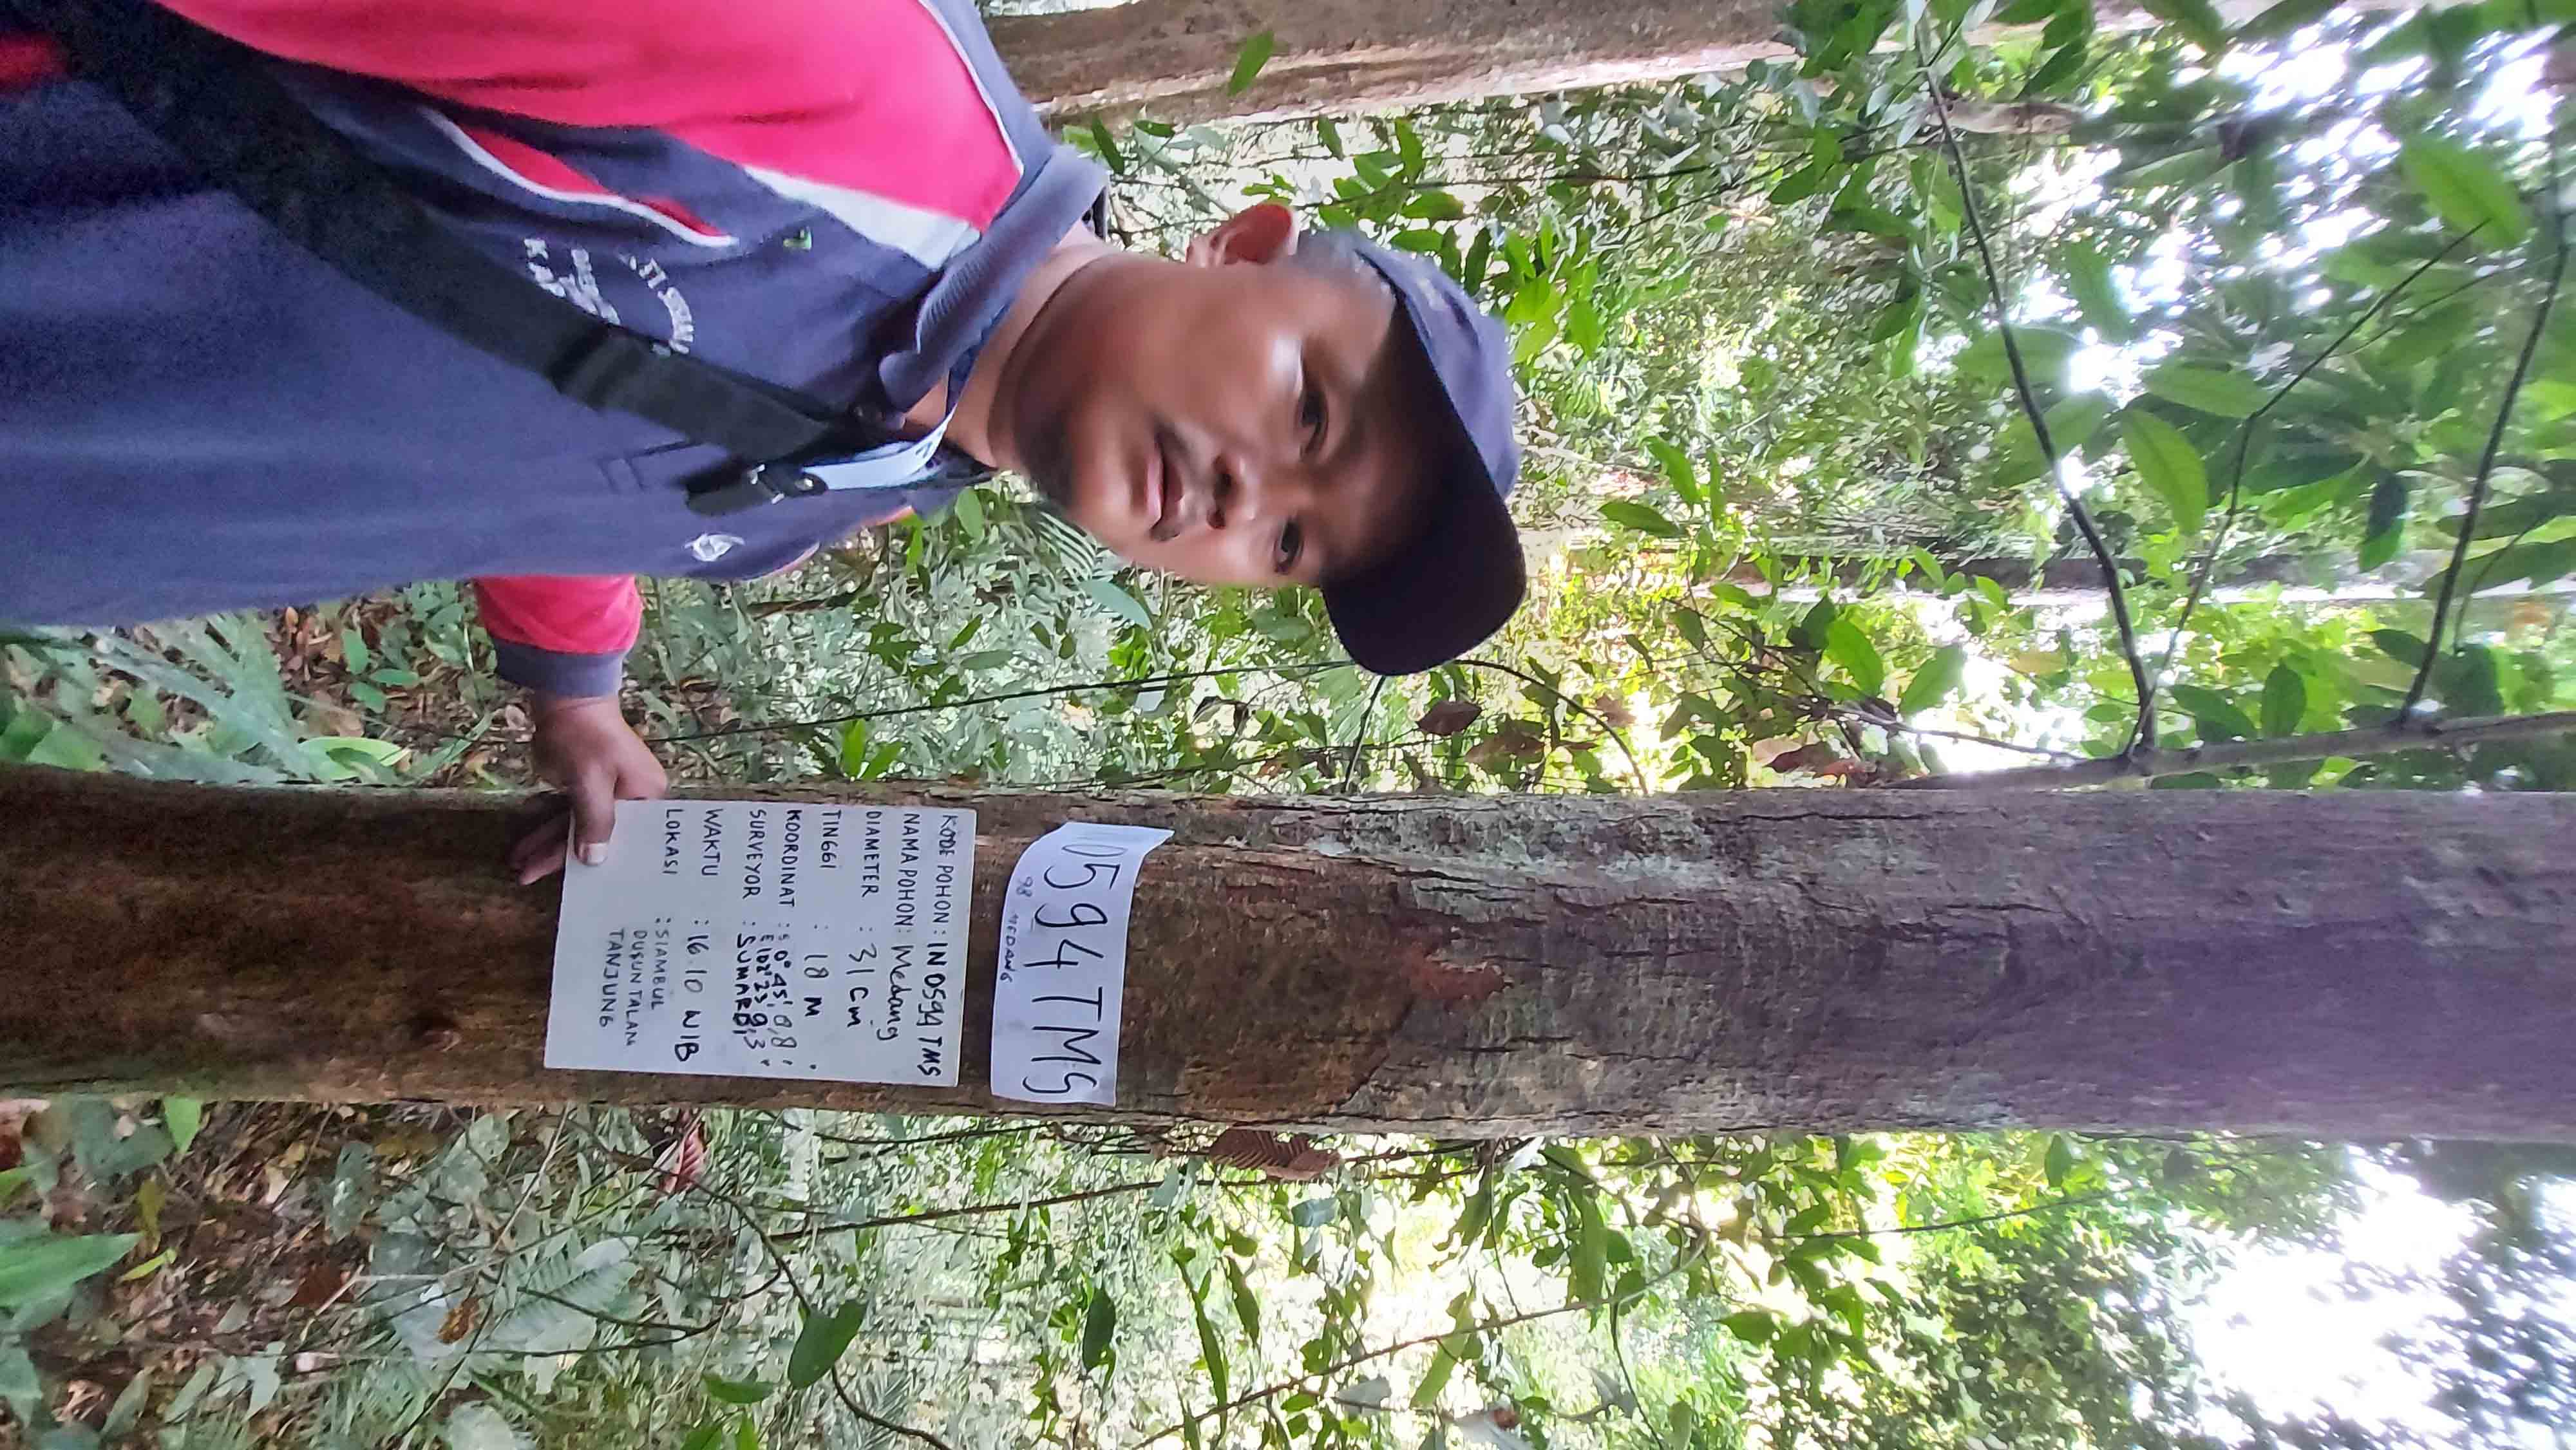 10594TMS
98 MEDANG
KODE POHON : IN 0594 TMS
NAMA POHON : Medang
DIAMETER : 31 cm
TINGGI : 18 M
KOORDINAT : S 0° 45' 0,8"
E 102° 23' 9,3"
SURVEYOR : SUMARDI
WAKTU : 16.10 WIB
LOKASI : SIAMBUL
DUSUN TALANG
TANJUNG